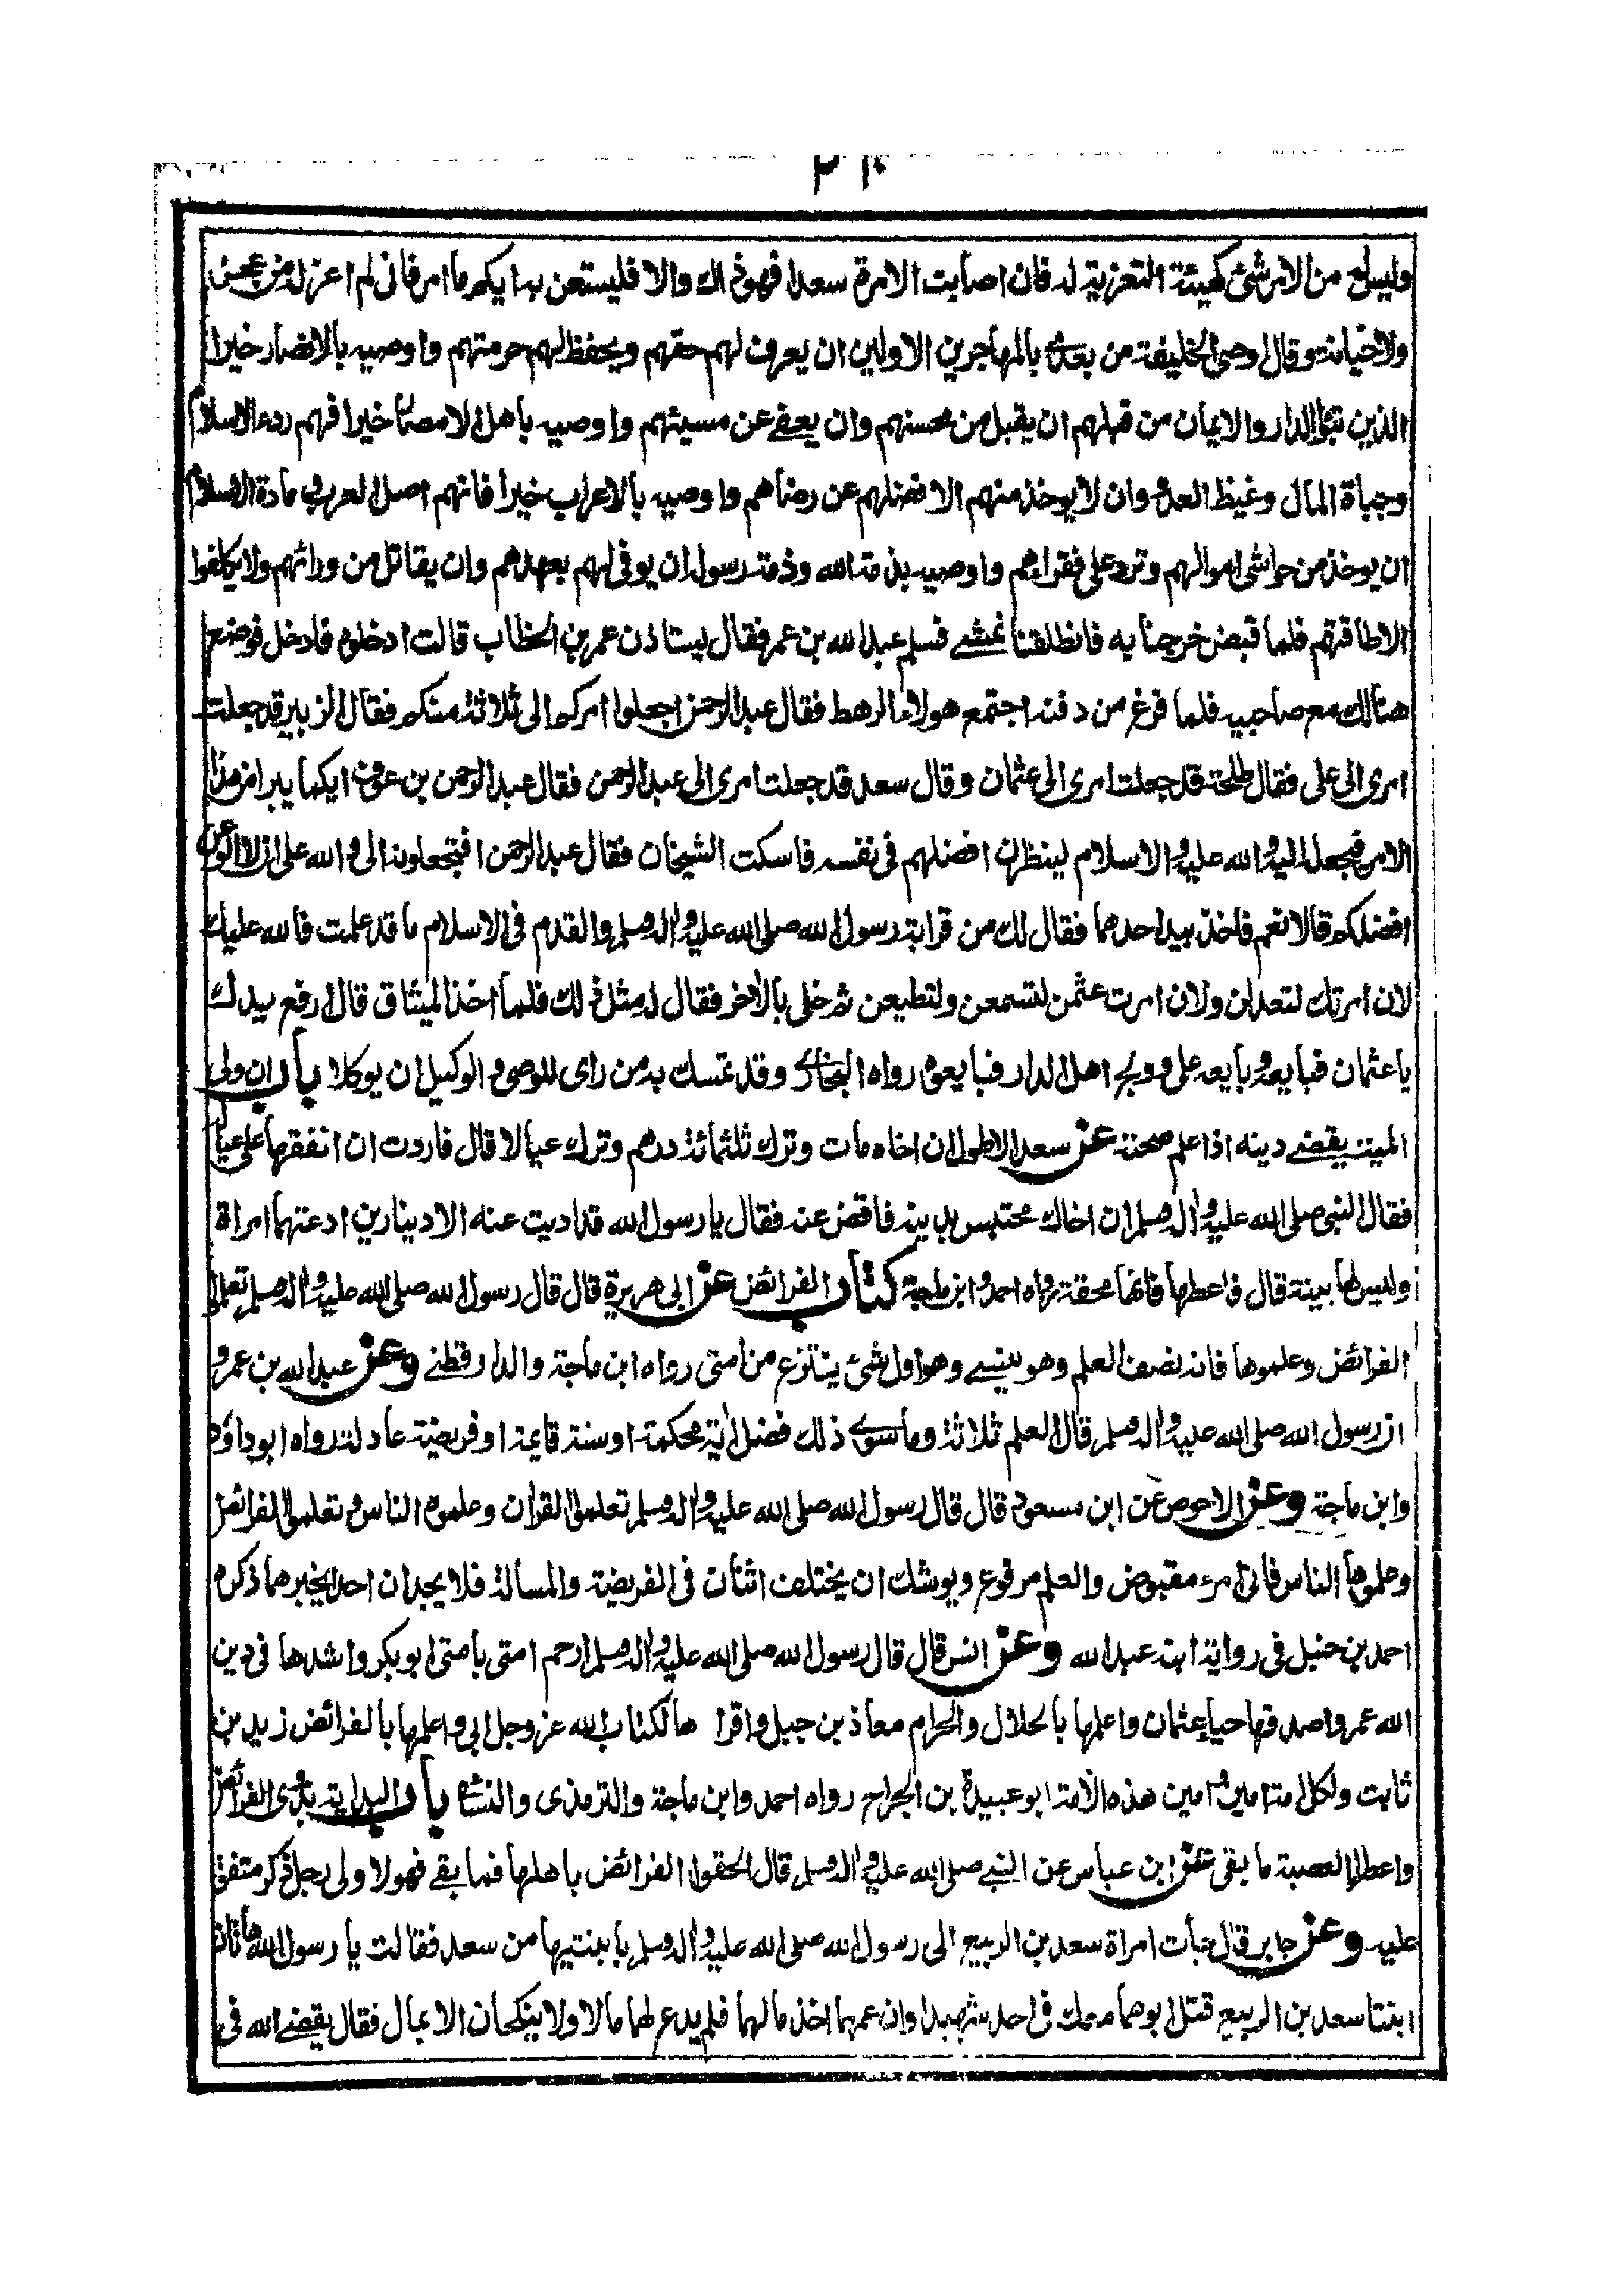 ٢١٠
وليس له من الامر شئ كهيئة التعزية له فان اصابت الامرة سعدا فهو ذاك والا فليستعن به ايكم ما امر فانى لم اعزله من عجز
ولا خيانة وقال اوصى الخليفة من بعدى بالمهاجرين الاولين ان يعرف لهم حقهم ويحفظ لهم حرمتهم واوصيه بالانصار خيرا
الذين تبوأ الدار والايمان من قبلهم ان يقبل من محسنهم وان يعفى عن مسيئهم واوصيه باهل الامصار خيرا فهم ردء الاسلام
وجباة المال وغيظ العدو وان لا يوخذ منهم الا فضلهم عن رضاهم واوصيه بالاعراب خيرا فانهم اصل العرب ومادة الاسلام
ان يوخذ من حواشى اموالهم وترد على فقراءهم واوصيه بذمة الله وذمة رسوله ان يوفى لهم بعهدهم وان يقاتل من ورائهم ولا يكلفوا
الا طاقتهم فلما قبض خرجنا به فانطلقنا نمشى فسلم عبد الله بن عمر فقال يستاذن عمر بن الخطاب قالت ادخلوه فادخل فوضع
هنالك مع صاحبيه فلما فرغ من دفنه اجتمع هولاء الرهط فقال عبد الرحمن اجعلوا امركم الى ثلاثة منكم فقال الزبير قد جعلت
امرى الى على فقال طلحة قد جعلت امرى الى عثمان وقال سعد قد جعلت امرى الى عبد الرحمن فقال عبد الرحمن بن عوف ايكما يبرا من هذا
الامر فنجعله اليه والله عليه والاسلام لينظرن افضلهم فى نفسه فاسكت الشيخان فقال عبد الرحمن افتجعلونه الى والله على ان لا الو عن
افضلكم قالا نعم فاخذ بيد احدهما فقال لك من قرابة رسول الله صلى الله عليه واله وسلم والقدم فى الاسلام ما قد علمت فالله عليك
لان امرتك لتعدلن ولان امرت عثمن لتسمعن ولتطيعن ثم خلى بالاخر فقال له مثل ذلك فلما اخذ الميثاق قال ارفع يدك
يا عثمان فبايعه وبايعه على وولج اهل الدار فبايعوه رواه البخارى وقد تمسك به من راى للوصى والوكيل ان يوكلا باب ان ولى
الميت يقضى دينه اذا علم صحته عن سعد الاطول ان اخاه مات وترك ثلثمائة درهم وترك عيالا قال فاردت ان انفقها على عياله
فقال النبى صلى الله عليه واله وسلم ان اخاك محتبس بدينه فاقض عنه فقال يا رسول الله قد اديت عنه الا دينارين ادعتهما امراة
وليس لها بينة قال فاعطها فانها محقة رواه احمد وابن ماجة كتاب الفرائض عن ابى هريرة قال قال رسول الله صلى الله عليه واله وسلم تعلموا
الفرائض وعلموها فانه نصف العلم وهو ينسى وهو اول شئ ينتزع من امتى رواه ابن ماجة والدارقطنى وعن عبد الله بن عمرو
ان رسول الله صلى الله عليه واله وسلم قال العلم ثلاثة وما سوى ذلك فضل اٰية محكمة او سنة قايمة او فريضة عادلة رواه ابو داؤد
وابن ماجة وعن الاحوص عن ابن مسعود قال قال رسول الله صلى الله عليه واله وسلم تعلموا القران وعلموه الناس وتعلموا الفرائض
وعلموها الناس فانى امرء مقبوض والعلم مرفوع ويوشك ان يختلف اثنان فى الفريضة والمسالة فلا يجدان احدا يخبرهما ذكره
احمد بن حنبل فى رواية ابنه عبد الله وعن انس قال قال رسول الله صلى الله عليه واله وسلم ارحم امتى بامتى ابو بكر واشدها فى دين
الله عمر واصدقها حياء عثمان واعلمها بالحلال والحرام معاذ بن جبل واقرا ها لكتاب الله عز وجل ابى واعلمها بالفرائض زيد بن
ثابت ولكل امة امين وامين هذه الامة ابو عبيدة بن الجراح رواه احمد وابن ماجة والترمذى والنسائى باب البداية بذوى الفرائض
واعطاء العصبة ما بقى عن ابن عباس عن النبى صلى الله عليه واله وسلم قال الحقوا الفرائض باهلها فما بقى فهو لاولى رجل ذكر متفق
عليه وعن جابر قال جأت امراة سعد بن الربيع الى رسول الله صلى الله عليه واله وسلم بابنتيها من سعد فقالت يا رسول الله هاتان
ابنتا سعد بن الربيع قتل ابوهما معك فى احد شهيدا وان عمهما اخذ مالهما فلم يدع لهما مالا ولا ينكحان الا بمال فقال يقضى الله فى